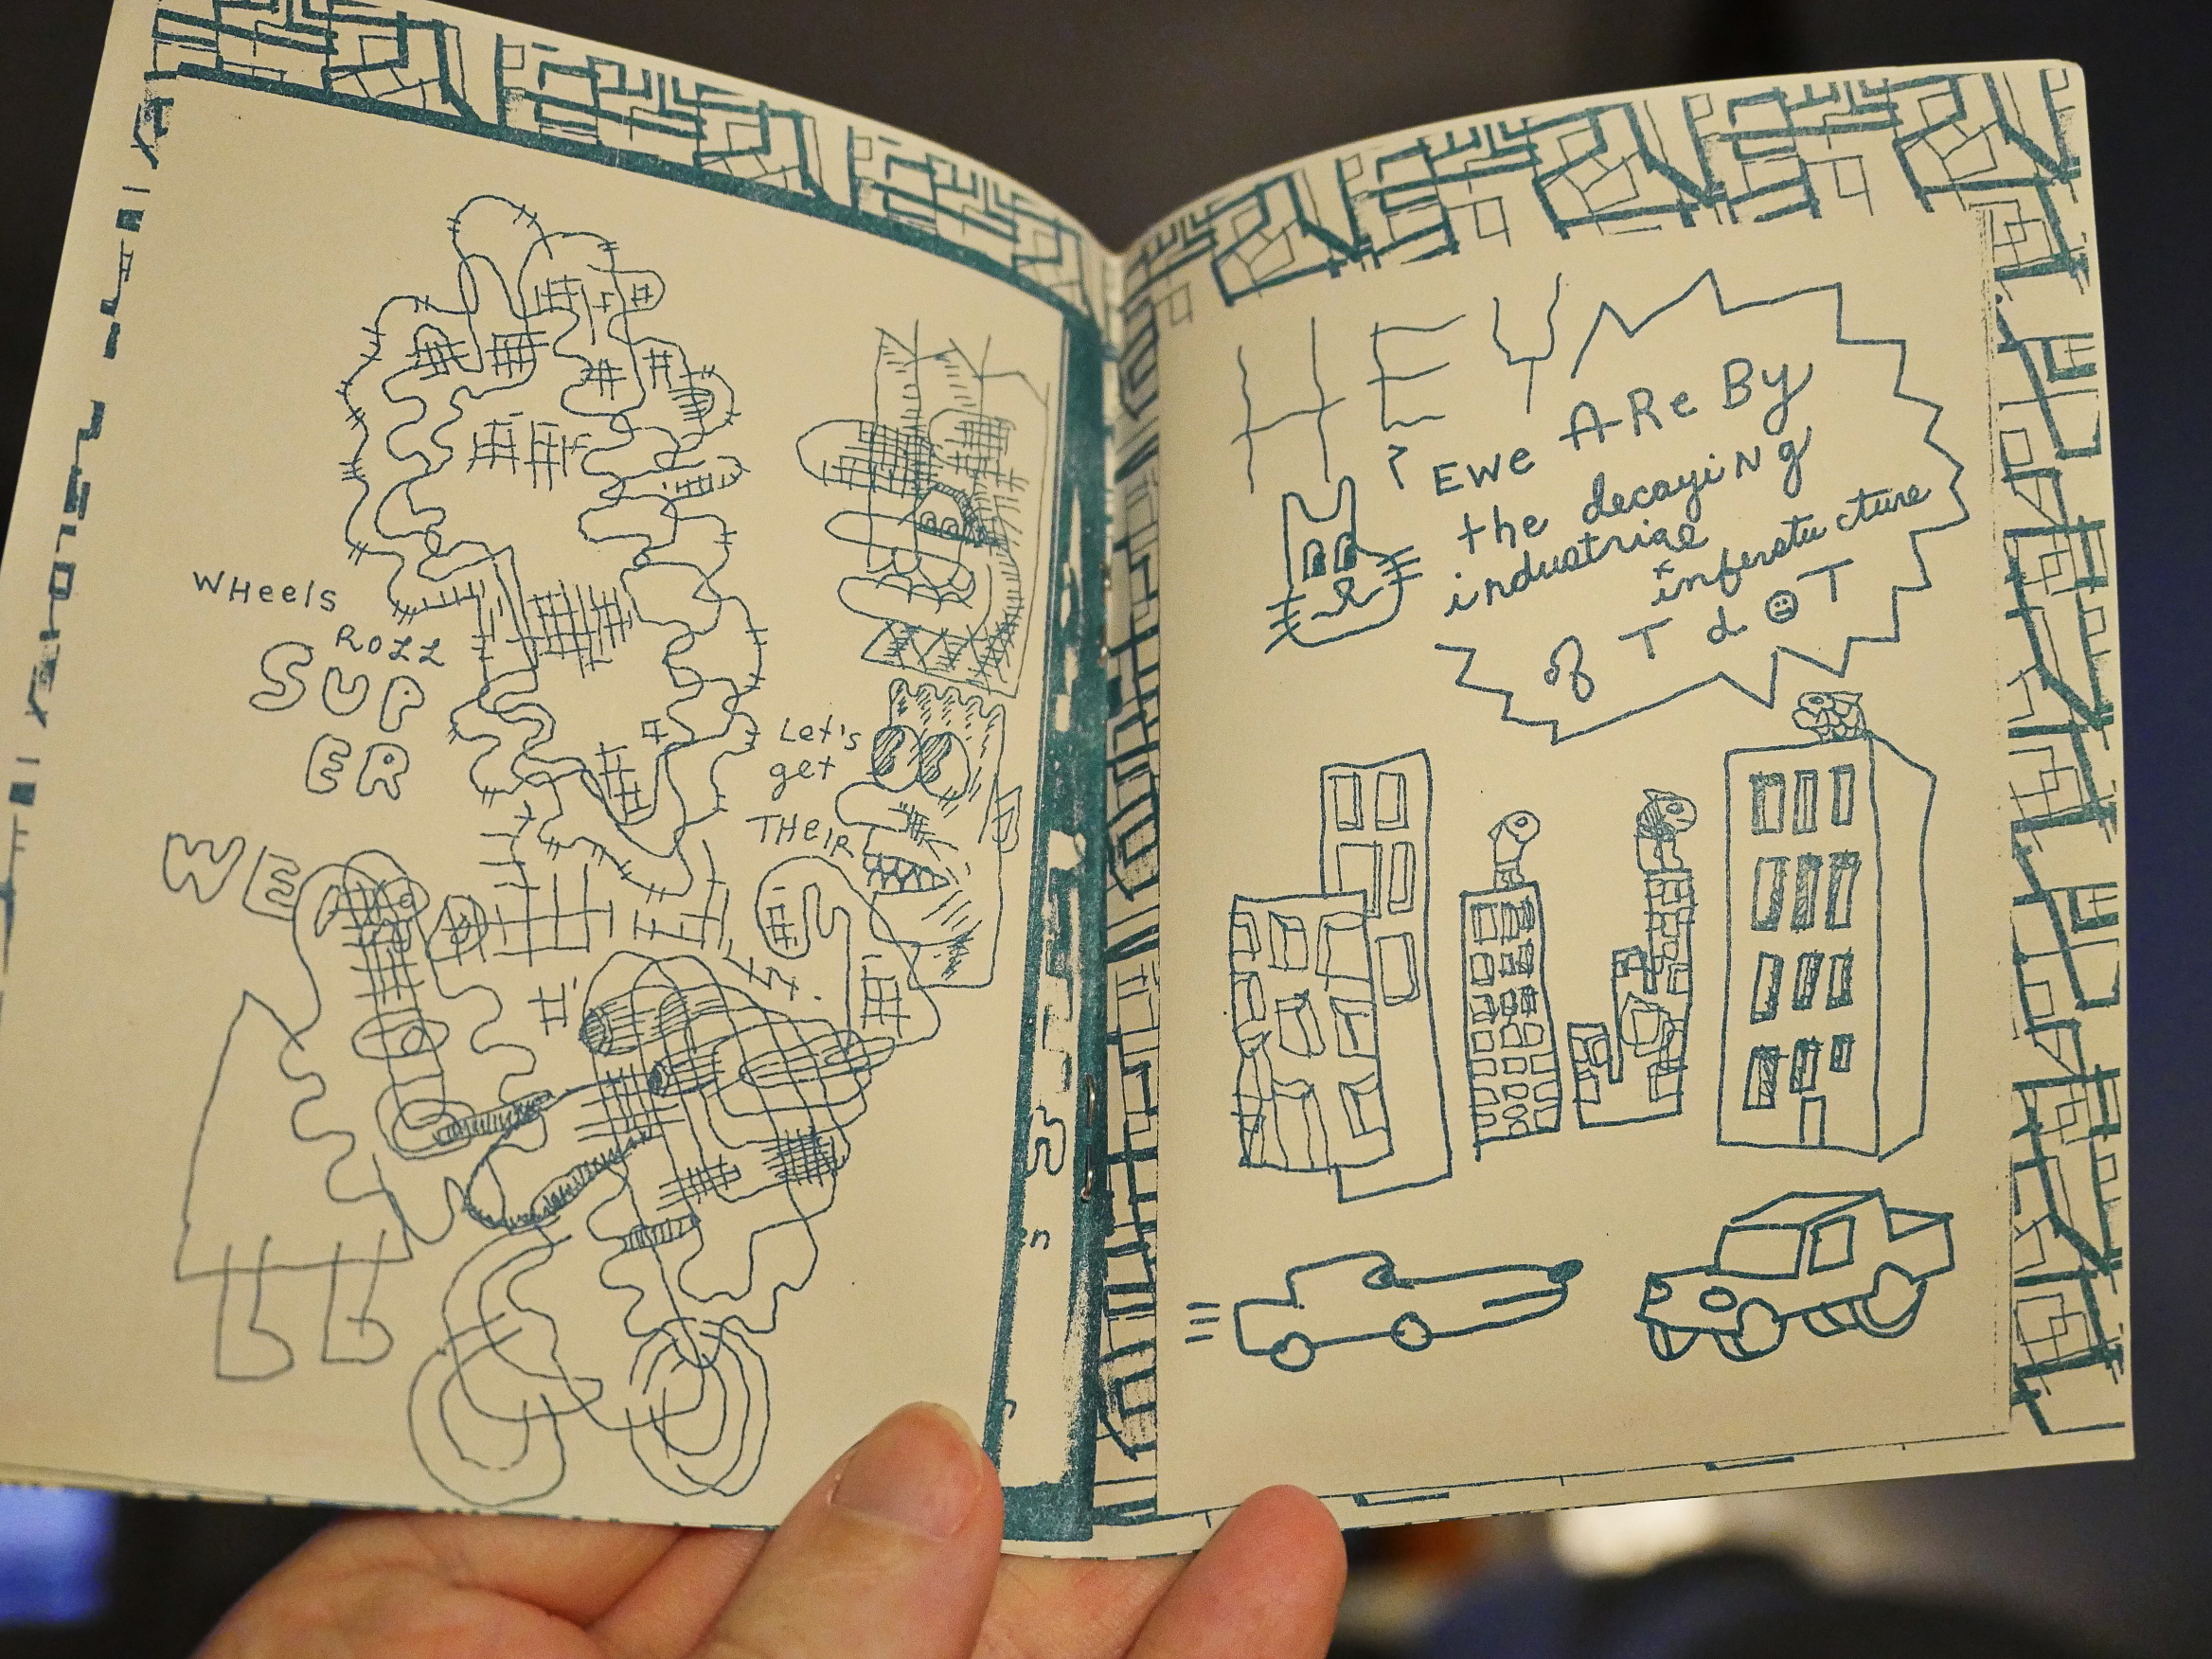 WHeels
ROLL
SUP
ER
WE
Let's
get
THEIR
HEY
EWe ARe By
the decayiNg
industriae
inferstucture
of T dOT